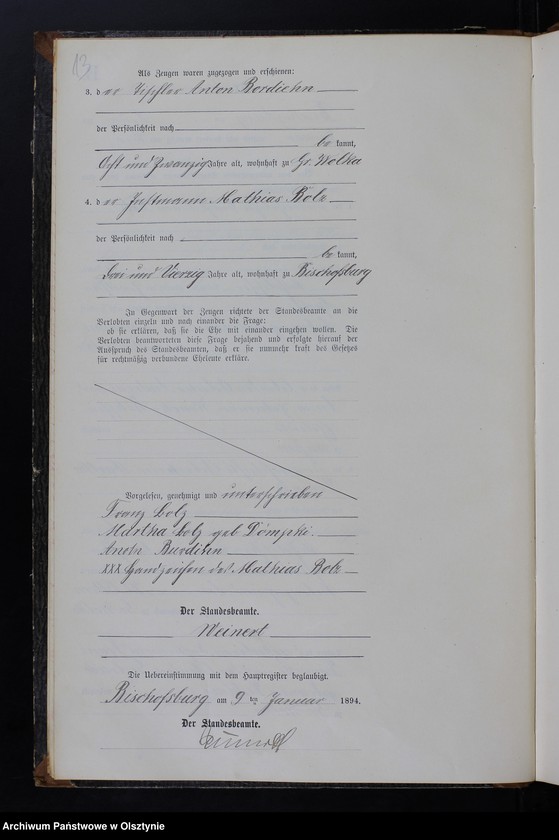 13
Als Zeugen waren zugezogen und erschienen:
3. der Tischler Anton Bordiehn
der Persönlichkeit nach
be kannt,
Acht und Zwanzig Jahre alt, wohnhaft zu Gr. Wolka
4. der Instmann Mathias Bolz
der Persönlichkeit nach
be kannt,
Drei und Vierzig Jahre alt, wohnhaft zu Bischofsburg
In Gegenwart der Zeugen richtete der Standesbeamte an die
Verlobten einzeln und nach einander die Frage:
ob sie erklären, daß sie die Ehe mit einander eingehen wollen. Die
Verlobten beantworteten diese Frage bejahend und erfolgte hierauf der
Ausspruch des Standesbeamten, daß er sie nunmehr kraft des Gesetzes
für rechtmäßig verbundene Eheleute erkläre.
Vorgelesen, genehmigt und unterschrieben
Franz Bolz
Martha Bolz geb
Anton Burdihn
XXX Handzeichen des Mathias Bolz
Der Standesbeamte.
Weinert
Die Uebereinstimmung mit dem Hauptregister beglaubigt.
Bischofsburg am 9 ten Januar 1894.
Der Standesbeamte.
Archiwum Państwowe w Olsztynie